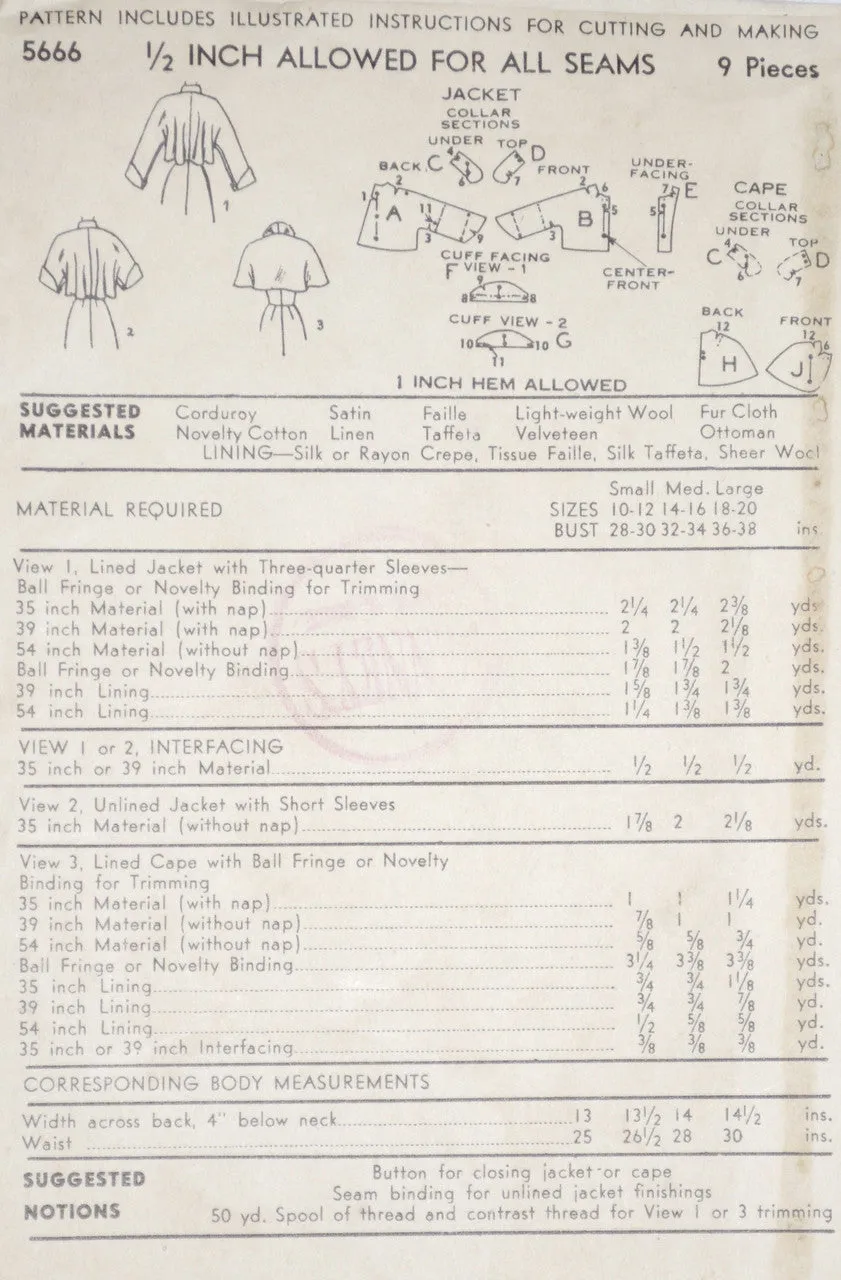 PATTERN INCLUDES ILLUSTRATED INSTRUCTIONS FOR CUTTING AND MAKING
5666 1/2 INCH ALLOWED FOR ALL SEAMS 9 Pieces
JACKET
COLLAR
SECTIONS
UNDER TOP
BACK C D FRONT
UNDER-
FACING
4 6 7 2 2 6 7 E
1 A 11 3 9 B 3 5 5
CAPE
COLLAR
SECTIONS
UNDER
TOP
C 4 6 D 7
CUFF FACING
F VIEW - 1
9
8 8
CENTER-
FRONT
CUFF VIEW - 2
10 10 G
11
BACK
12
FRONT
12
6
H J
1
2
3
1 INCH HEM ALLOWED
SUGGESTED Corduroy Satin Faille Light-weight Wool Fur Cloth
MATERIALS Novelty Cotton Linen Taffeta Velveteen Ottoman
LINING—Silk or Rayon Crepe, Tissue Faille, Silk Taffeta, Sheer Wool
Small Med. Large
MATERIAL REQUIRED SIZES 10-12 14-16 18-20
BUST 28-30 32-34 36-38 ins.
View 1, Lined Jacket with Three-quarter Sleeves—
Ball Fringe or Novelty Binding for Trimming
35 inch Material (with nap) 2 1/4 2 1/4 2 3/8 yds.
39 inch Material (with nap) 2 2 2 1/8 yds.
54 inch Material (without nap) 1 3/8 1 1/2 1 1/2 yds.
Ball Fringe or Novelty Binding 1 7/8 1 7/8 2 yds.
39 inch Lining 1 5/8 1 3/4 1 3/4 yds.
54 inch Lining 1 1/4 1 3/8 1 3/8 yds.
VIEW 1 or 2, INTERFACING
35 inch or 39 inch Material 1/2 1/2 1/2 yd.
View 2, Unlined Jacket with Short Sleeves
35 inch Material (without nap) 1 7/8 2 2 1/8 yds.
View 3, Lined Cape with Ball Fringe or Novelty
Binding for Trimming
35 inch Material (with nap) 1 1 1 1/4 yds.
39 inch Material (without nap) 7/8 1 1 yd.
54 inch Material (without nap) 5/8 5/8 3/4 yd.
Ball Fringe or Novelty Binding 3 1/4 3 3/8 3 3/8 yds.
35 inch Lining 3/4 3/4 1 1/8 yds.
39 inch Lining 3/4 3/4 7/8 yd.
54 inch Lining 1/2 5/8 5/8 yd.
35 inch or 39 inch Interfacing 3/8 3/8 3/8 yd.
CORRESPONDING BODY MEASUREMENTS
Width across back, 4" below neck 13 13 1/2 14 14 1/2 ins.
Waist 25 26 1/2 28 30 ins.
SUGGESTED Button for closing jacket or cape
Seam binding for unlined jacket finishings
NOTIONS 50 yd. Spool of thread and contrast thread for View 1 or 3 trimming